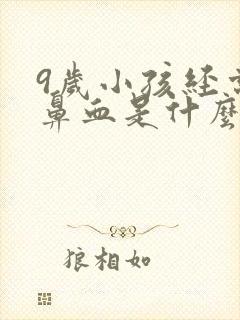 9歲小孩經常
鼻血是什麼
狼相如